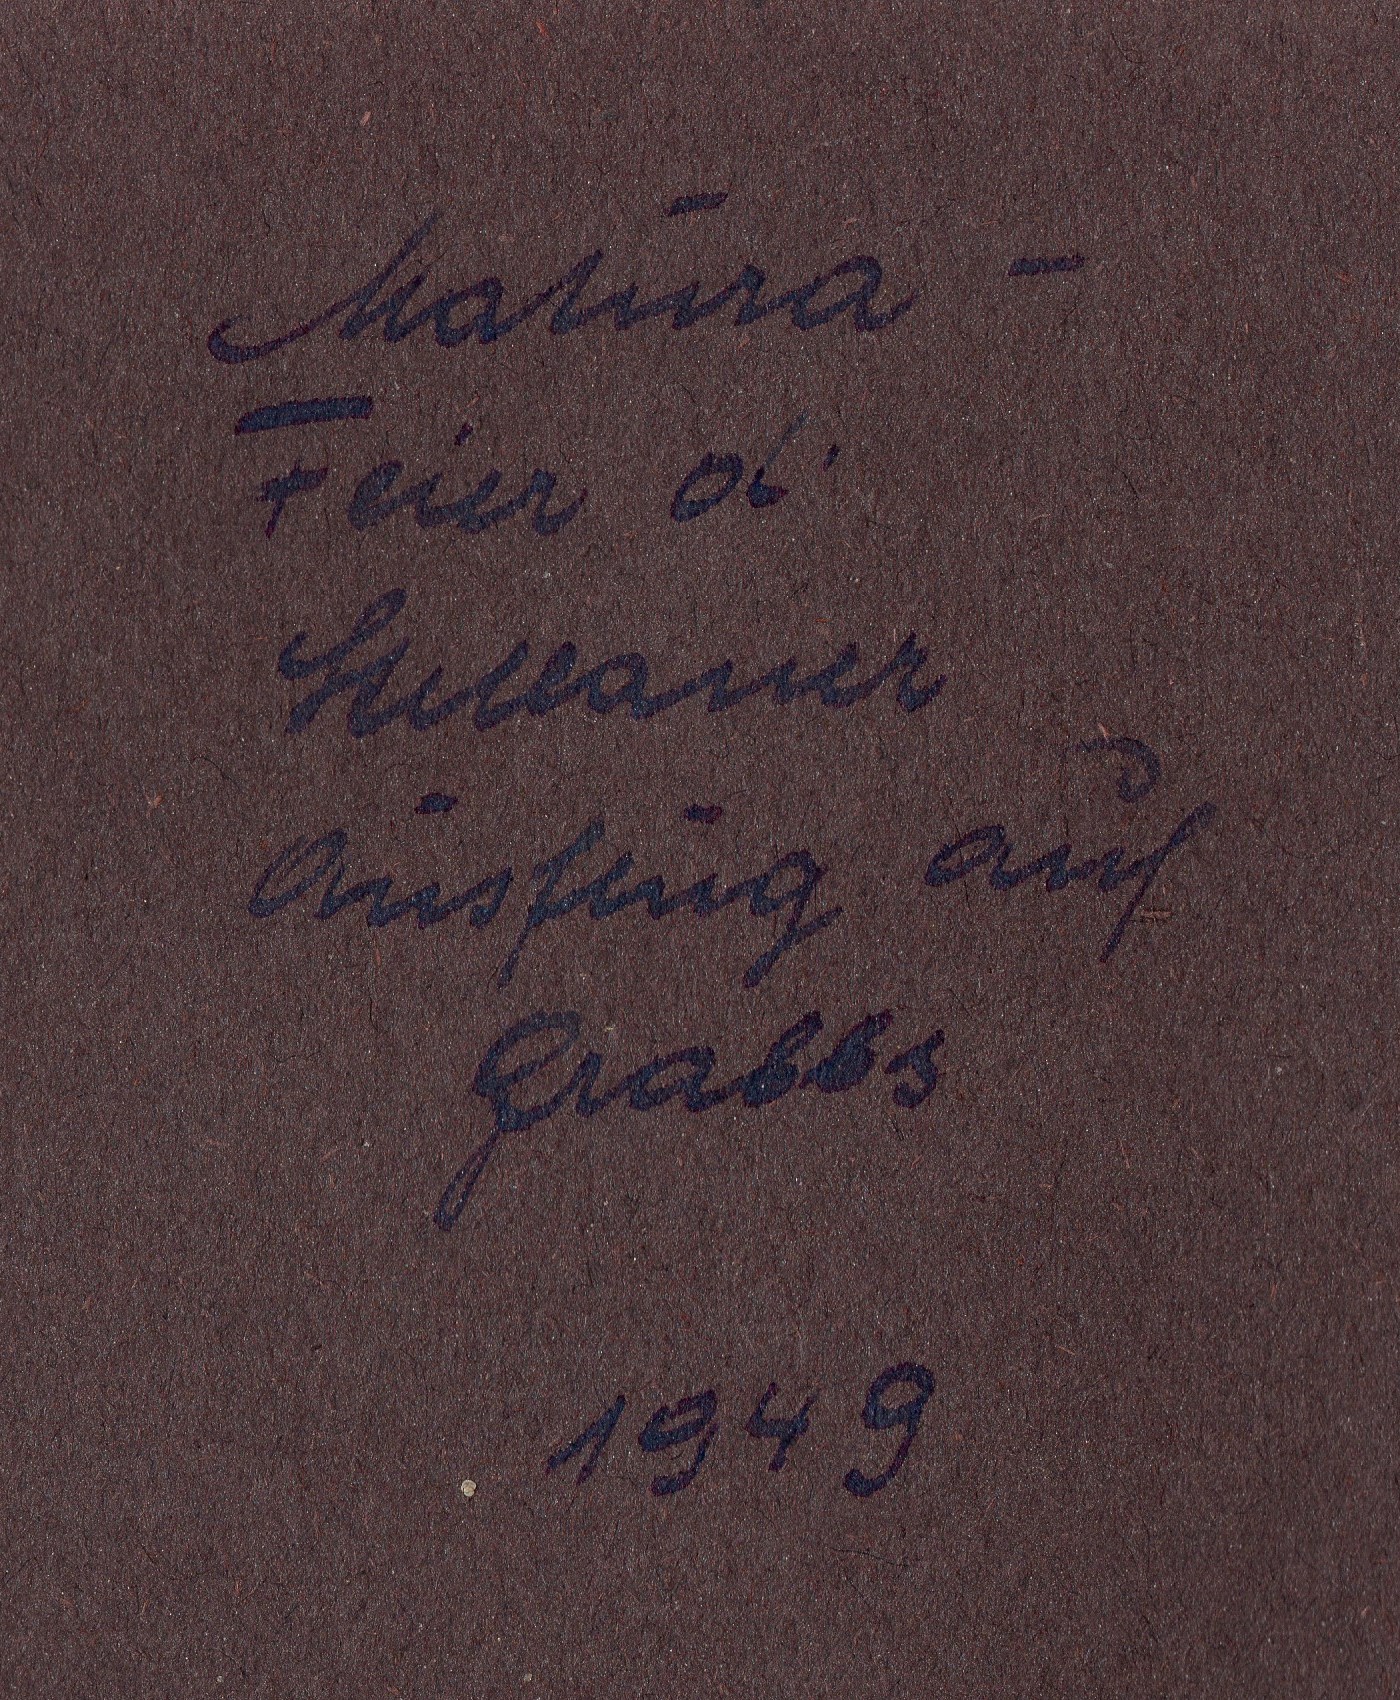 Matura -
Feier d.
Stellaner
Ausflug auf
Grabbs
1949